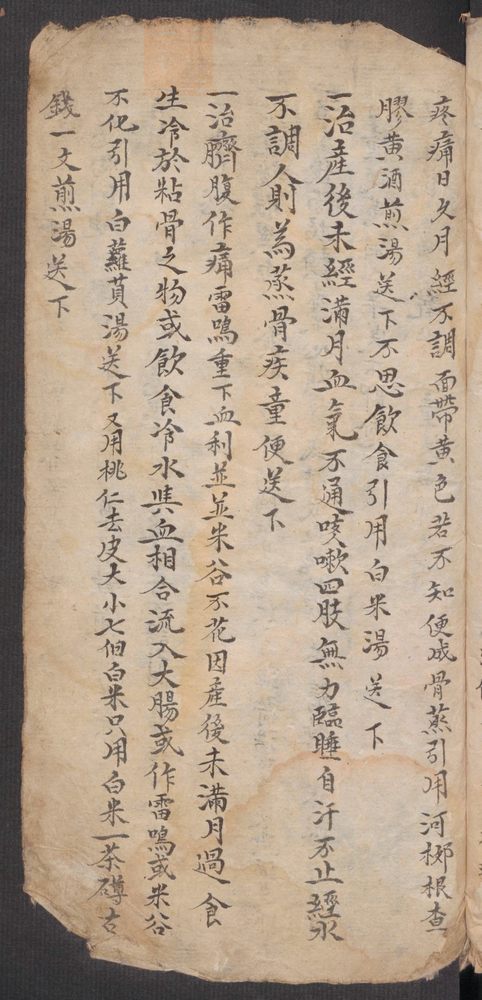 疼痛日久月經不調面帶黄色若不知便成骨蒸引用河柳根查
膠黄酒煎湯送下不思飲食引用白米湯送下
一治產後未經滿月血氣不通咳嗽四肢無力臨睡自汗不止經水
不調人則為蒸骨疾童便送下
一治臍腹作痛雷鳴重下血利並並米谷不花因產後未滿月過食
生冷於粘骨之物或飲食冷水與血相合流入大腸或作雷鳴或米谷
不化引用白蘿蔔湯送下又用桃仁去皮大小七個白米只用白米一茶罇古
錢一文煎湯送下